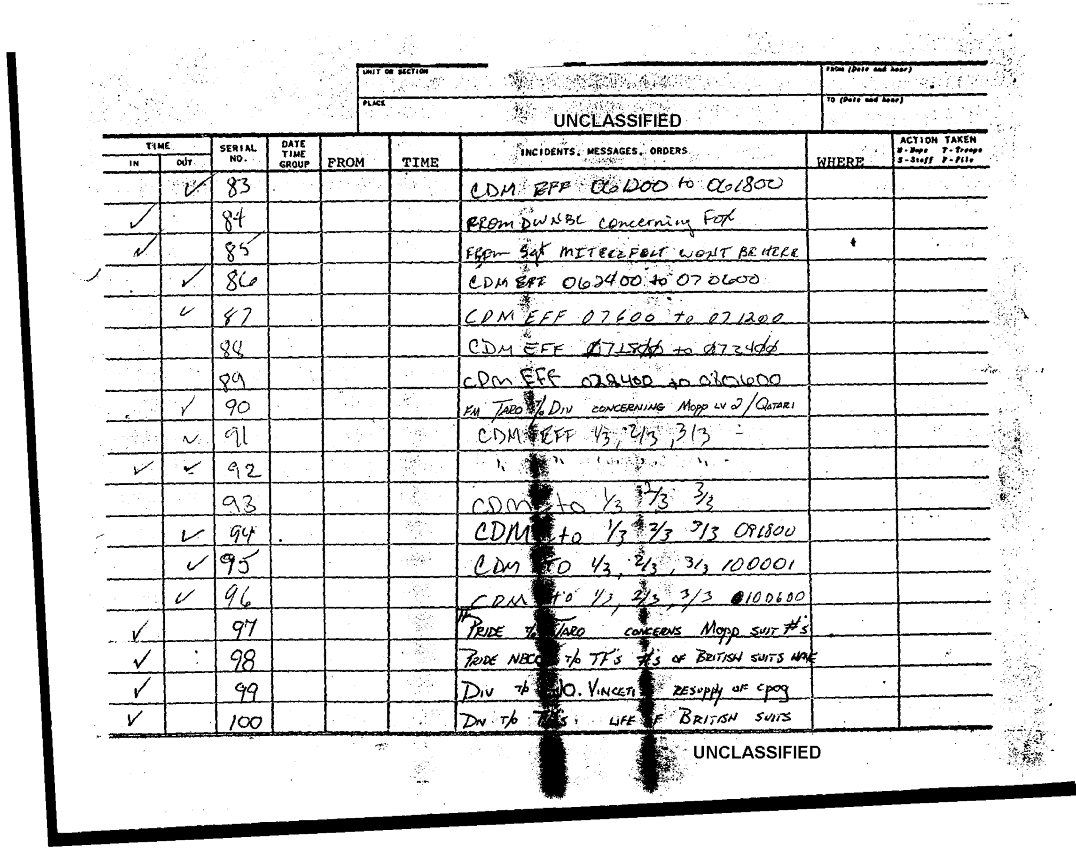 UNIT OR SECTION
FROM (Date and hour)
PLACE
TO (Date and hour)
UNCLASSIFIED
TIME
IN OUT
SERIAL NO.
DATE TIME GROUP
FROM
TIME
INCIDENTS, MESSAGES, ORDERS
WHERE
ACTION TAKEN
M-Maps T-Troops
S-Staff F-File
✓ 83 CDM EFF 061200 to 061800
✓ 84 FROM DIVNBC concerning FOX
✓ 85 FROM Sgt WONT BE HERE
✓ 86 CDM EFF 062400 to 070600
✓ 87 CDM EFF 07600 to 071200
88 CDM EFF 071800 to 072400
89 CDM EFF to 080600
✓ 90 FM TARO T/O DIV CONCERNING MOPP LV 2/QATARI
✓ 91 CDM EFF 1/3, 2/3, 3/3
✓ ✓ 92 " " "
93 CDM to 1/3 2/3 3/3
✓ 94 CDM to 1/3 2/3 3/3 091800
✓ 95 CDM TO 1/3, 2/3, 3/3 100001
✓ 96 CDM TO 1/3, 2/3, 3/3 0100600
✓ 97 PRIDE T/O TARO CONCERNS MOPP SUIT #'S
✓ 98 PRIDE T/O TF'S #'S OF BRITISH SUITS HAVE
✓ 99 DIV T/O VINCETI RESUPPLY OF CPOG
✓ 100 DIV T/O LIFE OF BRITISH SUITS
UNCLASSIFIED